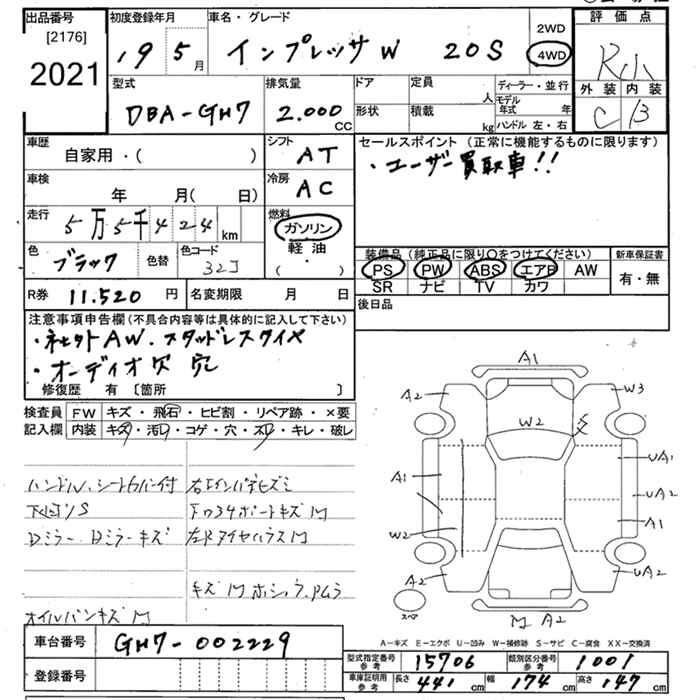 出品番号
[2176]
2021
初度登録年月
19 5月
車名・グレード
インプレッサW 20S
2WD
4WD
評価点
R小
外装 内装
C B
型式
DBA-GH7
排気量
2.000 CC
ドア
形状
定員 人
積載 kg
ディーラー・並行
モデル年式 年
ハンドル 左・右
車歴
自家用・( )
シフト
AT
セールスポイント (正常に機能するものに限ります)
・ユーザー買取車!!
車検
年 月( 日)
冷房
AC
走行
5万5千424 km
燃料
ガソリン
軽油
( ・ )
色
ブラック
色替
色コード
32J
装備品 (純正品に限り○をつけてください)
PS PW ABS エアB AW
SR ナビ TV カワ
新車保証書
有・無
R券 11.520 円
名変期限 月 日
後日品
注意事項申告欄(不具合内容等は具体的に記入して下さい)
・社外AW.スタッドレスタイヤ
・オーディオ欠 穴
修復歴 有 〔箇所 〕
検査員 FW キズ・飛石・ヒビ割・リペア跡・×要
記入欄 内装 キズ・汚レ・コゲ・穴・スレ・キレ・破レ
ハンドル、シートカバー付
下廻りS
Dミラー、Dミラーキズ
キズ
オイルパンキズ
A1
A2
W3
W2
A1
UA1
UA2
A1
W2
A2
UA2
A2
スペア
A-キズ E-エクボ U-凹み W-補修跡 S-サビ C-腐食 XX-交換済
車台番号 GH7-002229
登録番号
型式指定番号 参考 15706
類別区分番号 参考 1001
車庫証明用 参考 長さ 441 cm 幅 174 cm 高さ 147 cm